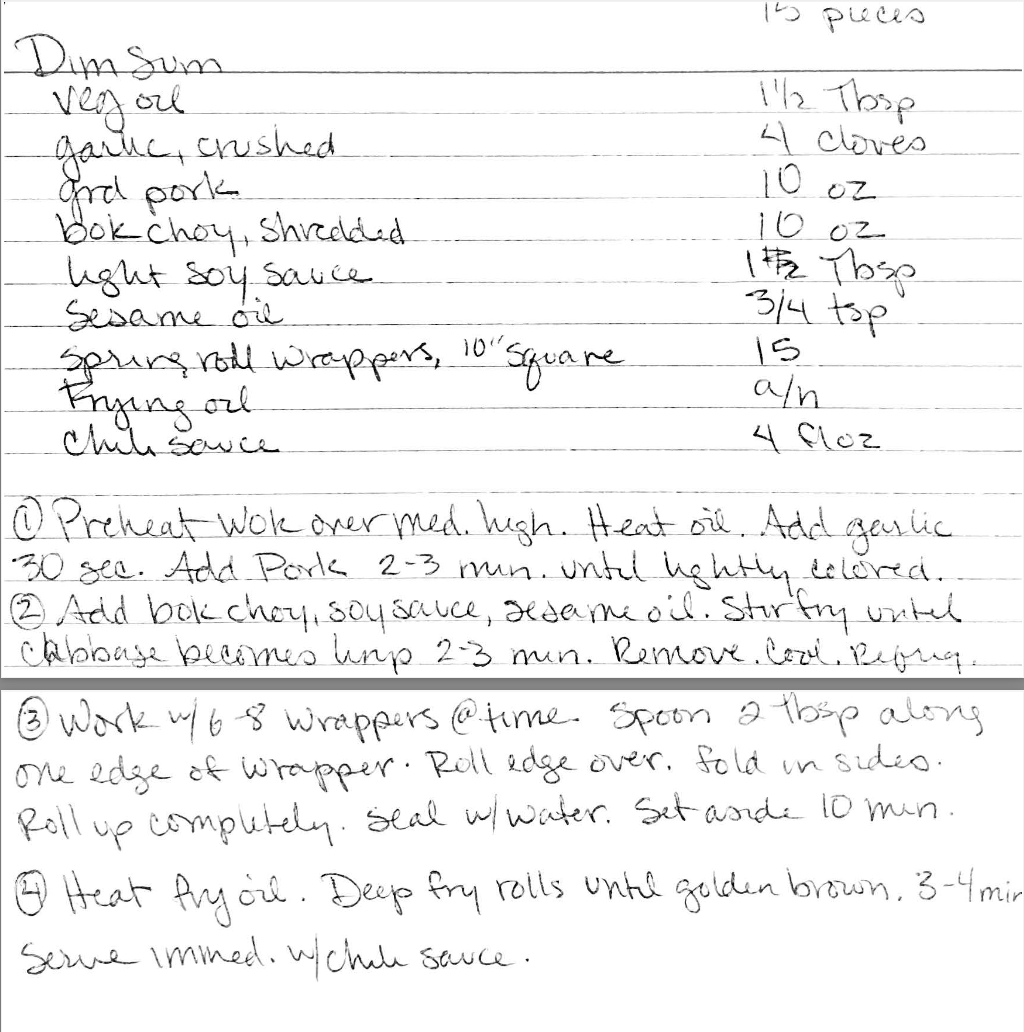 15 pieces
Dim Sum
veg oil 1 1/2 Tbsp
garlic, crushed 4 cloves
grd pork 10 oz
bok choy, shredded 10 oz
light soy sauce 1 1/2 Tbsp
Sesame oil 3/4 tsp
spring roll wrappers, 10" square 15
Frying oil a/n
Chili sauce 4 floz
① Preheat Wok over med. high. Heat oil. Add garlic
30 sec. Add Pork 2-3 min. until lightly colored.
② Add bok choy, soy sauce, sesame oil. Stir fry until
Cabbage becomes limp 2-3 min. Remove. Cool. Refrig.
③ Work w/ 6-8 wrappers @ time. Spoon 2 tbsp along
one edge of wrapper. Roll edge over. fold in sides.
Roll up completely. seal w/ water. Set aside 10 min.
④ Heat fry oil. Deep fry rolls until golden brown. 3-4 min
Serve immed. w/ chili sauce.